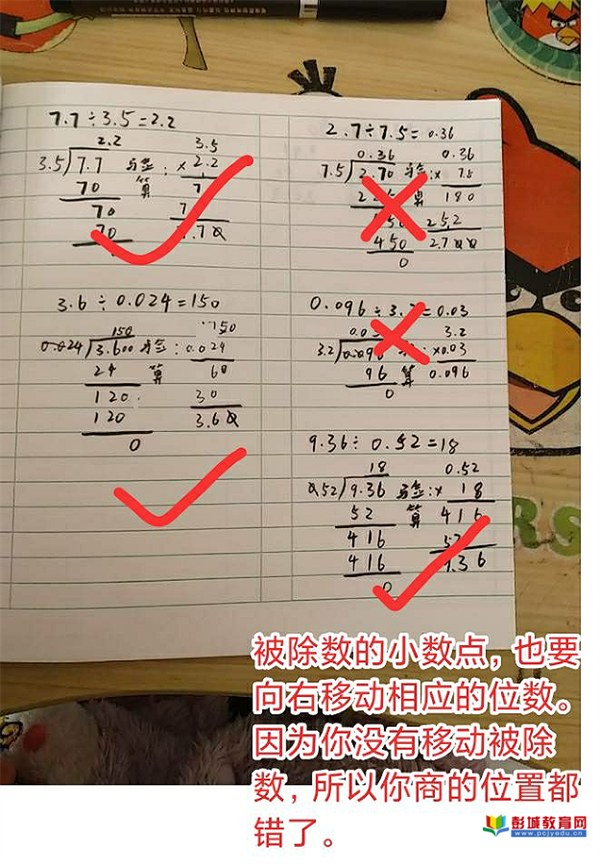 7.7÷3.5=2.2
2.2
3.5
3.5 7.7 验: ×2.2
70 算 7
70 7
70 7.70
3.6÷0.024=150
150
150
0.024 3.600 验: 0.024
24 算 60
120 30
120 3.60
0
2.7÷7.5=0.36
0.36
0.36
7.5 2.70 验: × 7.5
算 180
450 252
450 2.700
0
0.096÷3.2=0.03
3.2
3.2 0.096 ×0.03
96 算 0.096
0
9.36÷0.52=18
18
0.52
0.52 9.36 验:× 18
52 算 416
416 52
416 9.36
0
被除数的小数点，也要
向右移动相应的位数。
因为你没有移动被除
数，所以你商的位置都
错了。
彭城教育网
www.pcjyedu.cn